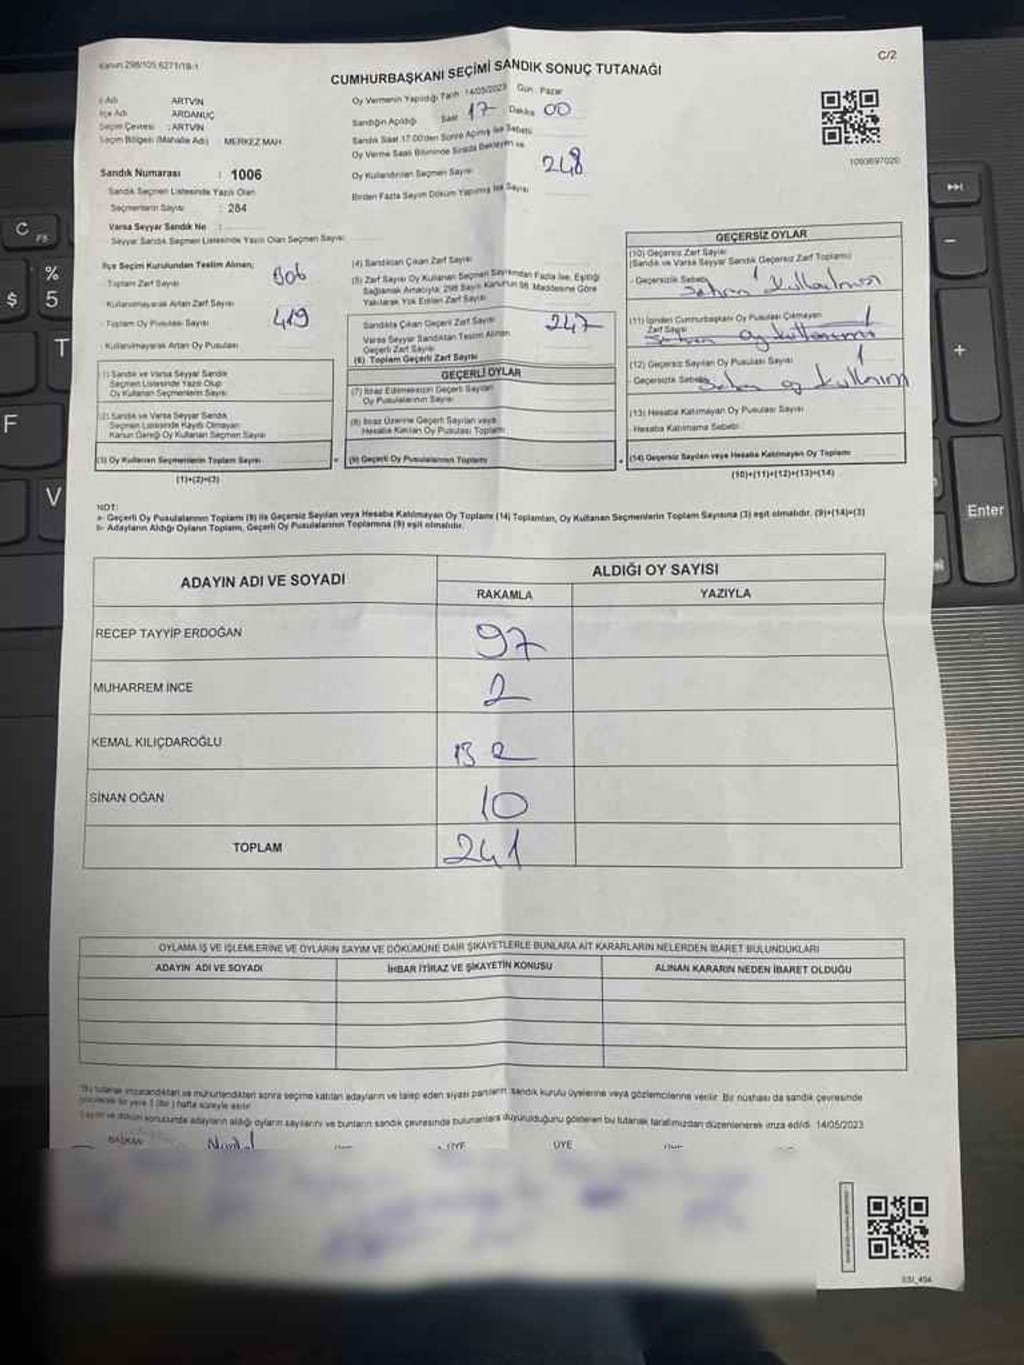 Kanun 298/105 6271/19-1
C/2
CUMHURBAŞKANI SEÇİMİ SANDIK SONUÇ TUTANAĞI
İl Adı ARTVİN
İlçe Adı ARDANUÇ
Seçim Çevresi : ARTVİN
Seçim Bölgesi (Mahalle Adı) MERKEZ MAH.
Oy Vermenin Yapıldığı Tarih 14/05/2023 Gün Pazar
Sandığın Açıldığı Saat 17 Dakika 00
Sandık Saat 17:00'den Sonra Açılmış İse Sebebi
Oy Verme Saati Bitiminde Sırada Bekleyen ve
Oy Kullandırılan Seçmen Sayısı 248
Birden Fazla Sayım Döküm Yapılmış İse Sayısı
1093697020
Sandık Numarası : 1006
Sandık Seçmen Listesinde Yazılı Olan
Seçmenlerin Sayısı : 284
Varsa Seyyar Sandık No :
Seyyar Sandık Seçmen Listesinde Yazılı Olan Seçmen Sayısı:
İlçe Seçim Kurulundan Teslim Alınan;
- Toplam Zarf Sayısı
- Kullanılmayarak Artan Zarf Sayısı
- Toplam Oy Pusulası Sayısı 419
- Kullanılmayarak Artan Oy Pusulası
(1) Sandık ve Varsa Seyyar Sandık
Seçmen Listesinde Yazılı Olup
Oy Kullanan Seçmenlerin Sayısı
(2) Sandık ve Varsa Seyyar Sandık
Seçmen Listesinde Kaydı Olmayan
Kanun Gereği Oy Kullanan Seçmen Sayısı
(3) Oy Kullanan Seçmenlerin Toplam Sayısı
(1)+(2)=(3)
(4) Sandıktan Çıkan Zarf Sayısı
(5) Zarf Sayısı Oy Kullanan Seçmen Sayısından Fazla İse, Eşitliği
Sağlamak Amacıyla; 298 Sayılı Kanunun 98. Maddesine Göre
Yakılarak Yok Edilen Zarf Sayısı
Sandıkta Çıkan Geçerli Zarf Sayısı 247
Varsa Seyyar Sandıktan Teslim Alınan
Geçerli Zarf Sayısı
(6) Toplam Geçerli Zarf Sayısı
GEÇERLİ OYLAR
(7) İtiraz Edilmeksizin Geçerli Sayılan
Oy Pusulalarının Sayısı
(8) İtiraz Üzerine Geçerli Sayılan veya
Hesaba Katılan Oy Pusulası Toplamı
= (9) Geçerli Oy Pusulalarının Toplamı +
GEÇERSİZ OYLAR
(10) Geçersiz Zarf Sayısı
(Sandık ve Varsa Seyyar Sandık Geçersiz Zarf Toplamı)
- Geçersizlik Sebebi
(11) İçinden Cumhurbaşkanı Oy Pusulası Çıkmayan
Zarf Sayısı 1
(12) Geçersiz Sayılan Oy Pusulası Sayısı 1
- Geçersizlik Sebebi
(13) Hesaba Katılmayan Oy Pusulası Sayısı
- Hesaba Katılmama Sebebi
(14) Geçersiz Sayılan veya Hesaba Katılmayan Oy Toplamı
(10)+(11)+(12)+(13)=(14)
NOT:
a- Geçerli Oy Pusulalarının Toplamı (9) ile Geçersiz Sayılan veya Hesaba Katılmayan Oy Toplamı (14) Toplamları, Oy Kullanan Seçmenlerin Toplam Sayısına (3) eşit olmalıdır. (9)+(14)=(3)
b- Adayların Aldığı Oyların Toplamı, Geçerli Oy Pusulalarının Toplamına (9) eşit olmalıdır.
ADAYIN ADI VE SOYADI ALDIĞI OY SAYISI
RAKAMLA YAZIYLA
RECEP TAYYİP ERDOĞAN 97
MUHARREM İNCE 2
KEMAL KILIÇDAROĞLU 132
SİNAN OĞAN 10
TOPLAM 241
OYLAMA İŞ VE İŞLEMLERİNE VE OYLARIN SAYIM VE DÖKÜMÜNE DAİR ŞİKAYETLERLE BUNLARA AİT KARARLARIN NELERDEN İBARET BULUNDUKLARI
ADAYIN ADI VE SOYADI İHBAR İTİRAZ VE ŞİKAYETİN KONUSU ALINAN KARARIN NEDEN İBARET OLDUĞU
*Bu tutanak imzalandıktan ve mühürlendikten sonra seçime katılan adayların ve talep eden siyasi partilerin sandık kurulu üyelerine veya gözlemcilerine verilir. Bir nüshası da sandık çevresinde
görülecek bir yere 1 (bir) hafta süreyle asılır.
Sayım ve döküm sonucunda adayların aldığı oyların sayılarını ve bunların sandık çevresinde bulunanlara duyurulduğunu gösteren bu tutanak tarafımızdan düzenlenerek imza edildi. 14/05/2023
BAŞKAN ÜYE ÜYE
C F5
% 5
$
T
F
V
Enter